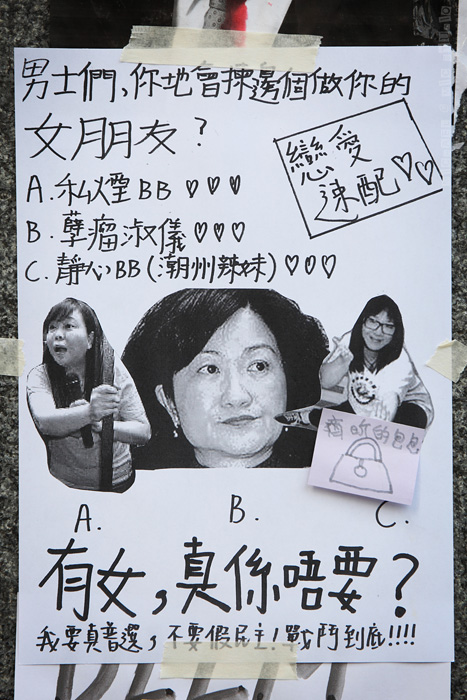 男士們，你地會揀邊個做你的
女朋友？
戀愛
速配♡♡
A. 私煙BB ♡♡♡
B. 孽瘤淑儀♡♡♡
C. 靜心BB(潮州辣妹)♡♡♡
的包包
A.
B.
C.
有女，真係唔要？
我要真普選，不要假民主！戰鬥到底!!!!